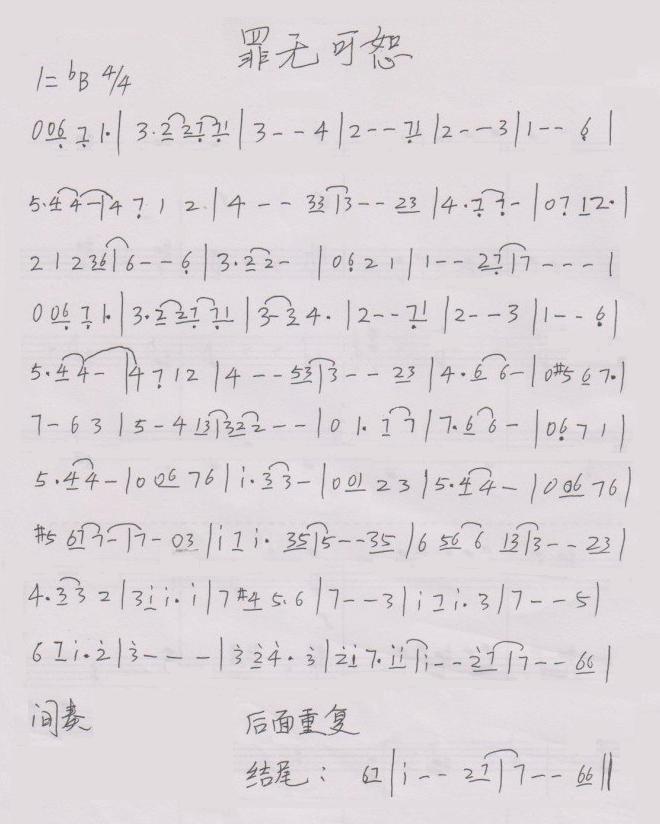 罪无可恕
1=ᵇB 4/4
0 06 7 1·| 3·2 27 71 | 3 - - 4 | 2 - - 71 | 2 - - 3 | 1 - - 6 |
5·4 4 - | 4 7 1 2 | 4 - - 33 | 3 - - 23 | 4·7 7 - | 0 7 1 2·|
2 1 2 36 | 6 - - 6 | 3·2 2 - | 0 6 2 1 | 1 - - 27 | 7 - - - |
0 06 7 1·| 3·2 27 71 | 3 - 3 4·| 2 - - 71 | 2 - - 3 | 1 - - 6 |
5·4 4 - | 4 7 1 2 | 4 - - 53 | 3 - - 23 | 4·6 6 - | 0 #5 6 7·|
7 - 6 3 | 5 - 4 13 | 32 2 - - | 0 1·7 7 | 7·6 6 - | 0 6 7 1 |
5·4 4 - | 0 06 76 | i·3 3 - | 0 01 2 3 | 5·4 4 - | 0 06 76 |
#5 67 7 - | 7 - 03 | i 1 i· 35 | 5 - - 35 | 6 56 6 13 | 3 - - 23 |
4·3 3 2 | 3 i i·i | 7 #4 5·6 | 7 - - 3 | i 1 i·3 | 7 - - 5 |
6 1 i·2̇ | 3̇ - - - | 3̇ 2̇ 4̇·3̇ | 2̇i 7·ii | i - - 2̇7 | 7 - - 66 |
间奏
后面重复
结尾： 67 | i - - 27 | 7 - - 66 ‖